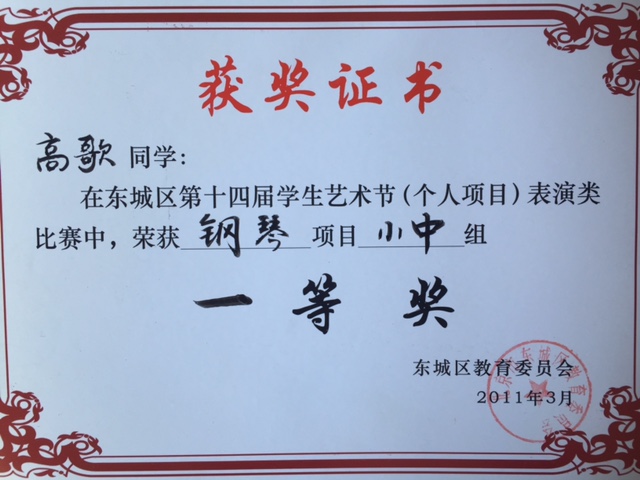 获奖证书
高歌 同学：
在东城区第十四届学生艺术节（个人项目）表演类
比赛中，荣获 钢琴 项目 小中 组
一等奖
东城区教育委员会
2011年3月